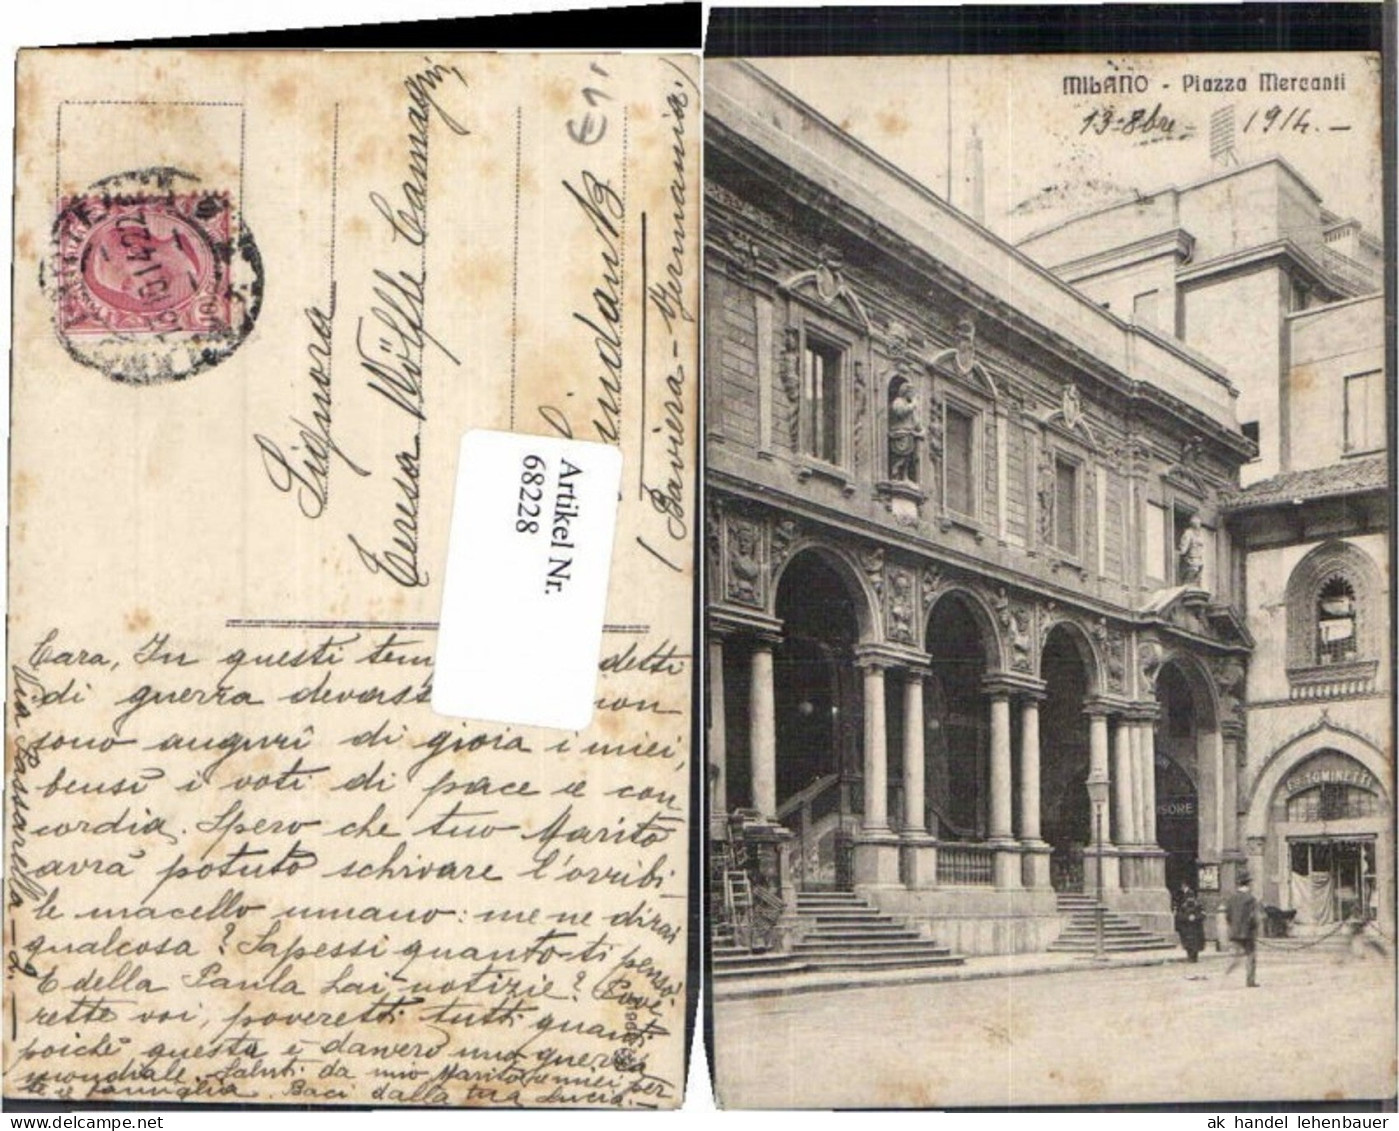 Signora
Teresa Wölfle Camagni
Lindau B
(Baviera - Germania.)
Artikel Nr.
68228
Cara, In questi tem detti
di guerra devass non
sono auguri di gioia i miei,
bensì i voti di pace e con
cordia. Spero che tuo Marito
avrà potuto schivare l'orribi
le macello umano: me ne dirai
qualcosa? Sapessi quanto ti penso!
E della Paula hai notizie? Pove
rette voi, poveretti tutti quanti
poichè questa è davvero una guerra
mondiale. Saluti da mio Marito e miei per
te e famiglia. Baci dalla tua Lucia.-
Via Passarella - 2.-
MILANO - Piazza Mercanti
13-8bre - 1914.-
TOMINETTI
SORE
ak handel lehenbauer